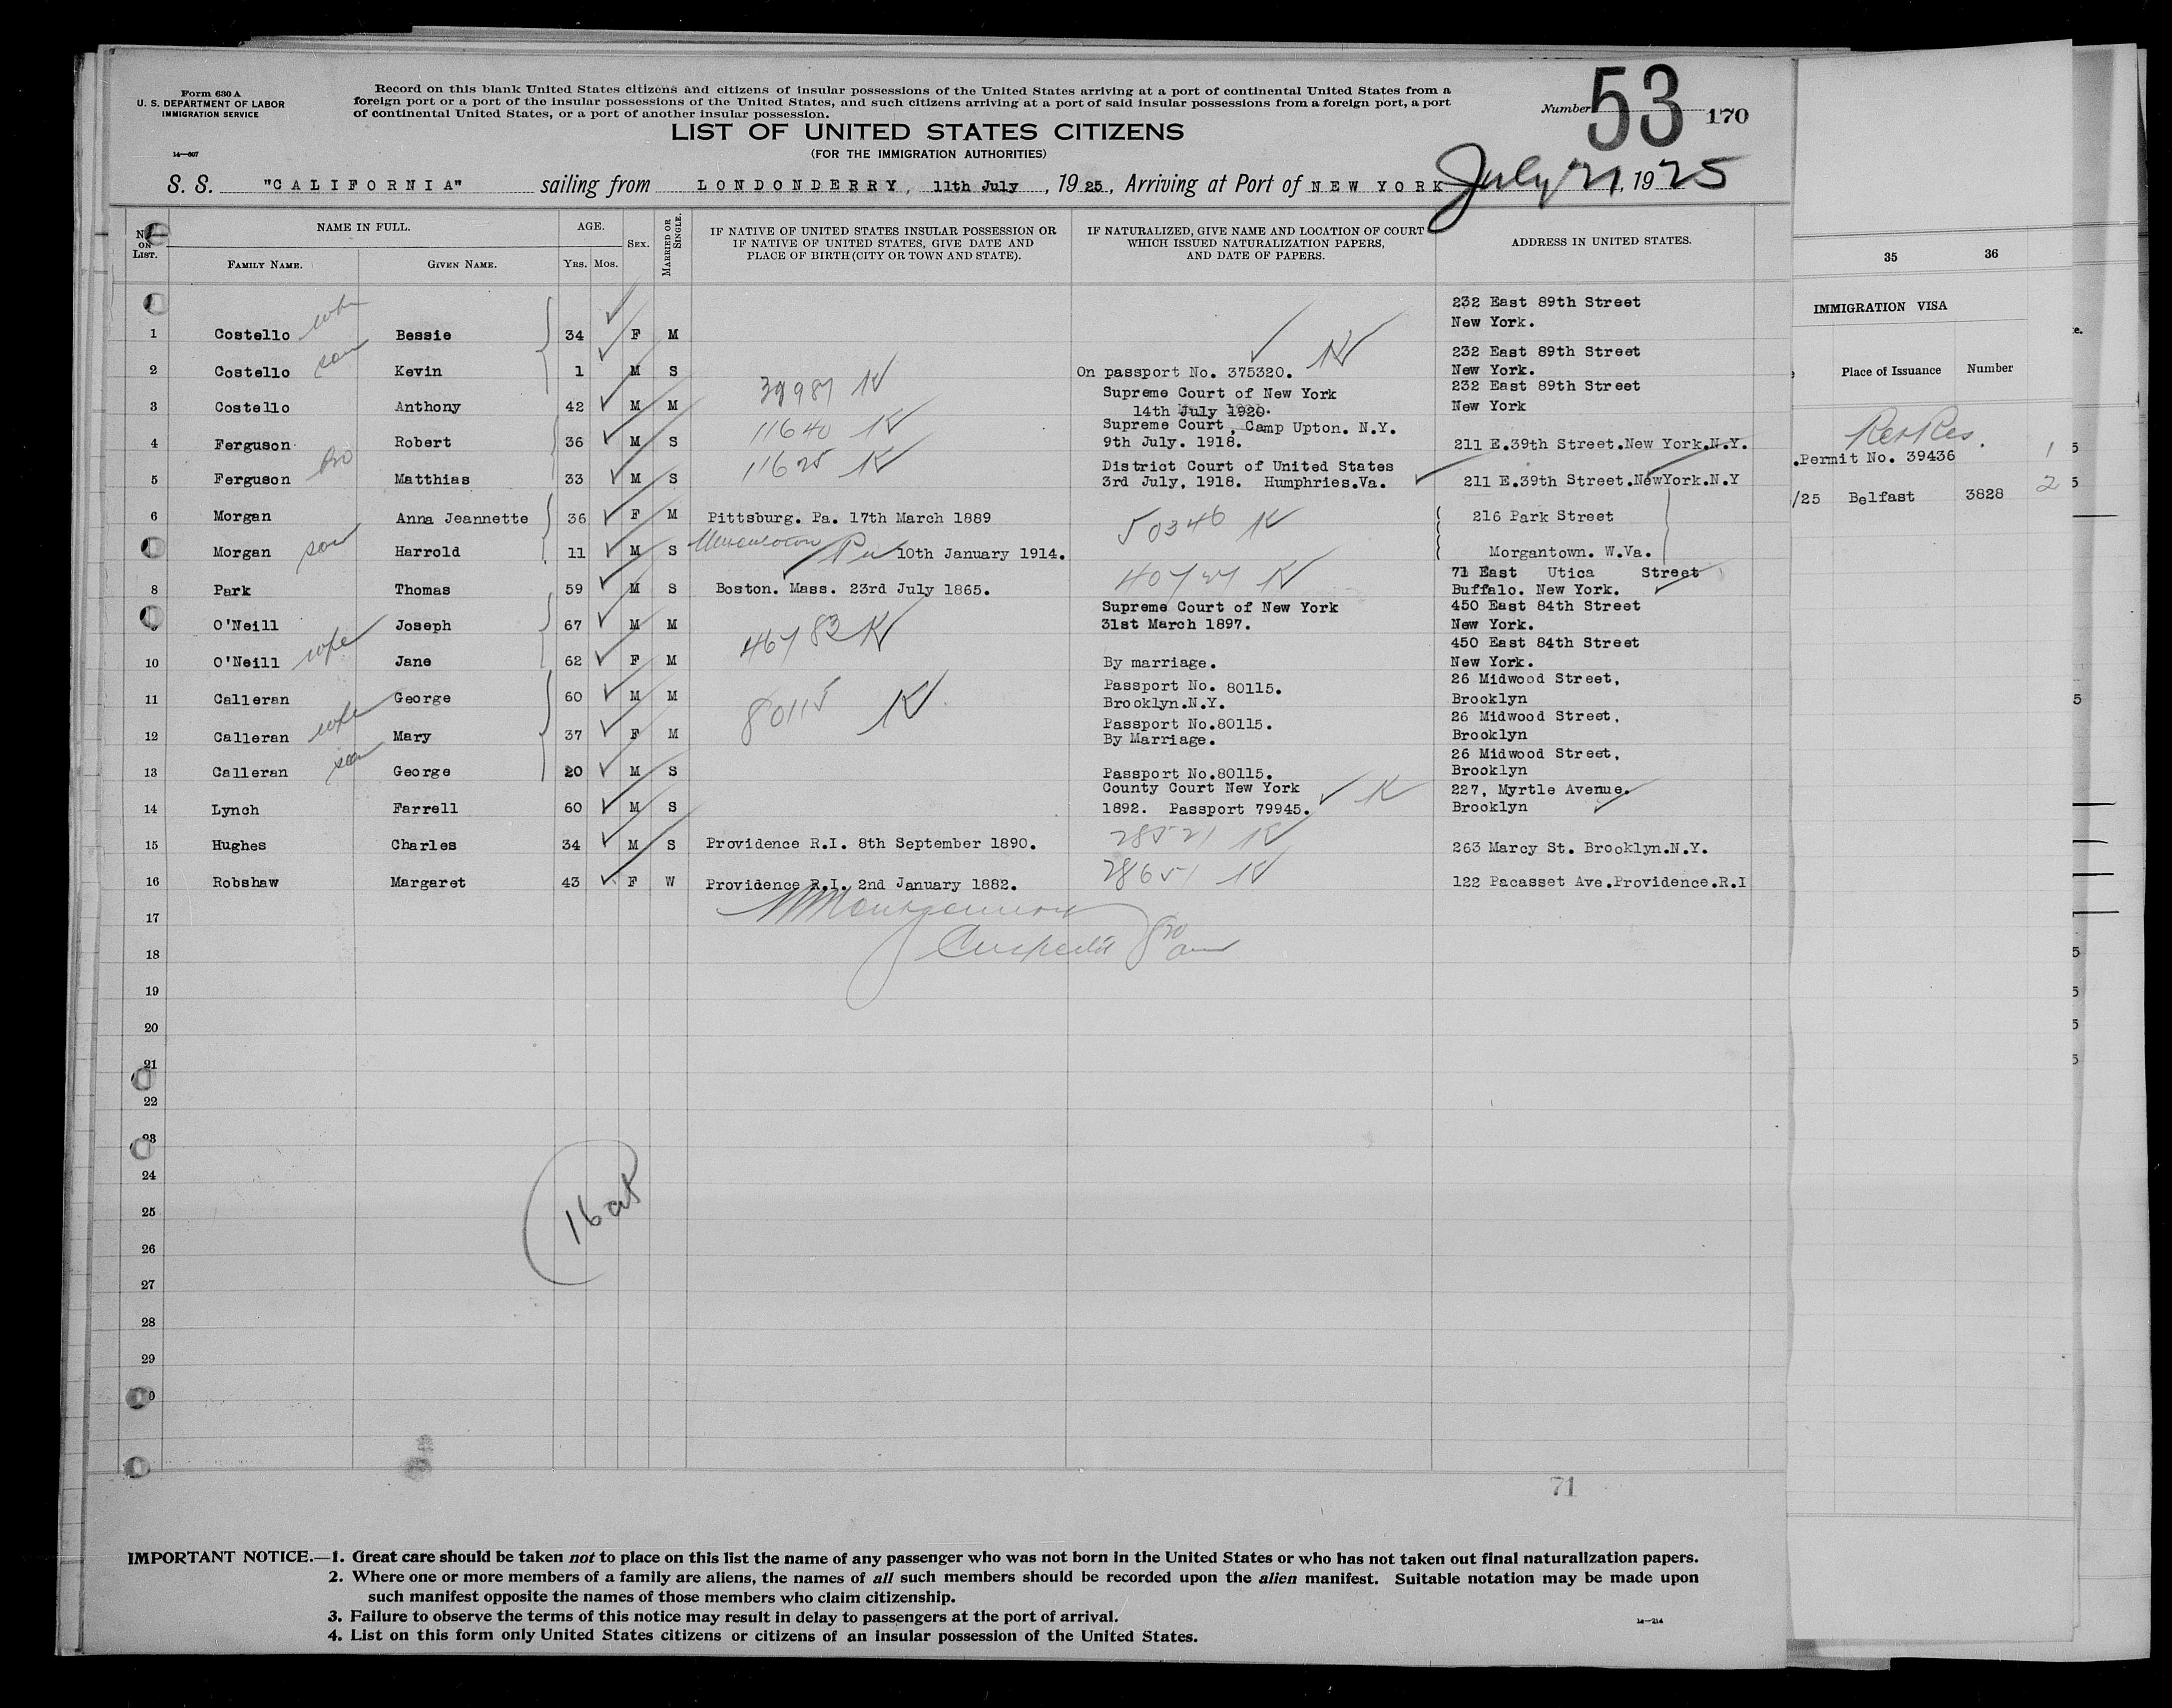 Form 630 A
U. S. DEPARTMENT OF LABOR
IMMIGRATION SERVICE
14—807
Record on this blank United States citizens and citizens of insular possessions of the United States arriving at a port of continental United States from a
foreign port or a port of the insular possessions of the United States, and such citizens arriving at a port of said insular possessions from a foreign port, a port
of continental United States, or a port of another insular possession.
Number 53 170
LIST OF UNITED STATES CITIZENS
(FOR THE IMMIGRATION AUTHORITIES)
S. S. "CALIFORNIA" sailing from LONDONDERRY, 11th July, 19 25, Arriving at Port of NEW YORK July 21, 1925
No. ON LIST. NAME IN FULL. AGE. SEX. MARRIED OR SINGLE. IF NATIVE OF UNITED STATES INSULAR POSSESSION OR IF NATIVE OF UNITED STATES, GIVE DATE AND PLACE OF BIRTH (CITY OR TOWN AND STATE). IF NATURALIZED, GIVE NAME AND LOCATION OF COURT WHICH ISSUED NATURALIZATION PAPERS, AND DATE OF PAPERS. ADDRESS IN UNITED STATES.
FAMILY NAME. GIVEN NAME. YRS. MOS.
232 East 89th Street
1 Costello Bessie 34 F M New York.
232 East 89th Street
2 Costello son Kevin 1 M S On passport No. 375320. New York.
Supreme Court of New York 232 East 89th Street
3 Costello Anthony 42 M M 14th July 1920. New York
Supreme Court, Camp Upton. N.Y.
4 Ferguson Robert 36 M S 11640 K 9th July. 1918. 211 E.39th Street.New York.N.Y.
District Court of United States
5 Ferguson Bro Matthias 33 M S 11625 K 3rd July, 1918. Humphries.Va. 211 E.39th Street.NewYork.N.Y
6 Morgan Anna Jeannette 36 F M Pittsburg. Pa. 17th March 1889 50346 K 216 Park Street
Morgan son Harrold 11 M S Pa 10th January 1914. Morgantown. W.Va.
71 East Utica Street
8 Park Thomas 59 M S Boston. Mass. 23rd July 1865. Buffalo. New York.
Supreme Court of New York 450 East 84th Street
O'Neill Joseph 67 M M 46783 K 31st March 1897. New York.
450 East 84th Street
10 O'Neill wife Jane 62 F M By marriage. New York.
Passport No. 80115. 26 Midwood Street,
11 Calleran George 60 M M 80115 K Brooklyn.N.Y. Brooklyn
Passport No.80115. 26 Midwood Street,
12 Calleran wife Mary 37 F M By Marriage. Brooklyn
26 Midwood Street,
13 Calleran son George 20 M S Passport No.80115. Brooklyn
County Court New York 227, Myrtle Avenue.
14 Lynch Farrell 60 M S 1892. Passport 79945. K Brooklyn
15 Hughes Charles 34 M S Providence R.I. 8th September 1890. 28521 K 263 Marcy St. Brooklyn.N.Y.
16 Robshaw Margaret 43 F W Providence R.I. 2nd January 1882. 28651 K 122 Pacasset Ave.Providence.R.I
17
18
19
20
21
22
23
24
25
26
27
28
29
16
71
IMPORTANT NOTICE.—1. Great care should be taken not to place on this list the name of any passenger who was not born in the United States or who has not taken out final naturalization papers.
2. Where one or more members of a family are aliens, the names of all such members should be recorded upon the alien manifest. Suitable notation may be made upon
such manifest opposite the names of those members who claim citizenship.
3. Failure to observe the terms of this notice may result in delay to passengers at the port of arrival.
4. List on this form only United States citizens or citizens of an insular possession of the United States.
14—214
35 36
IMMIGRATION VISA
Place of Issuance Number
.Permit No. 39436 1
/25 Belfast 3828 2